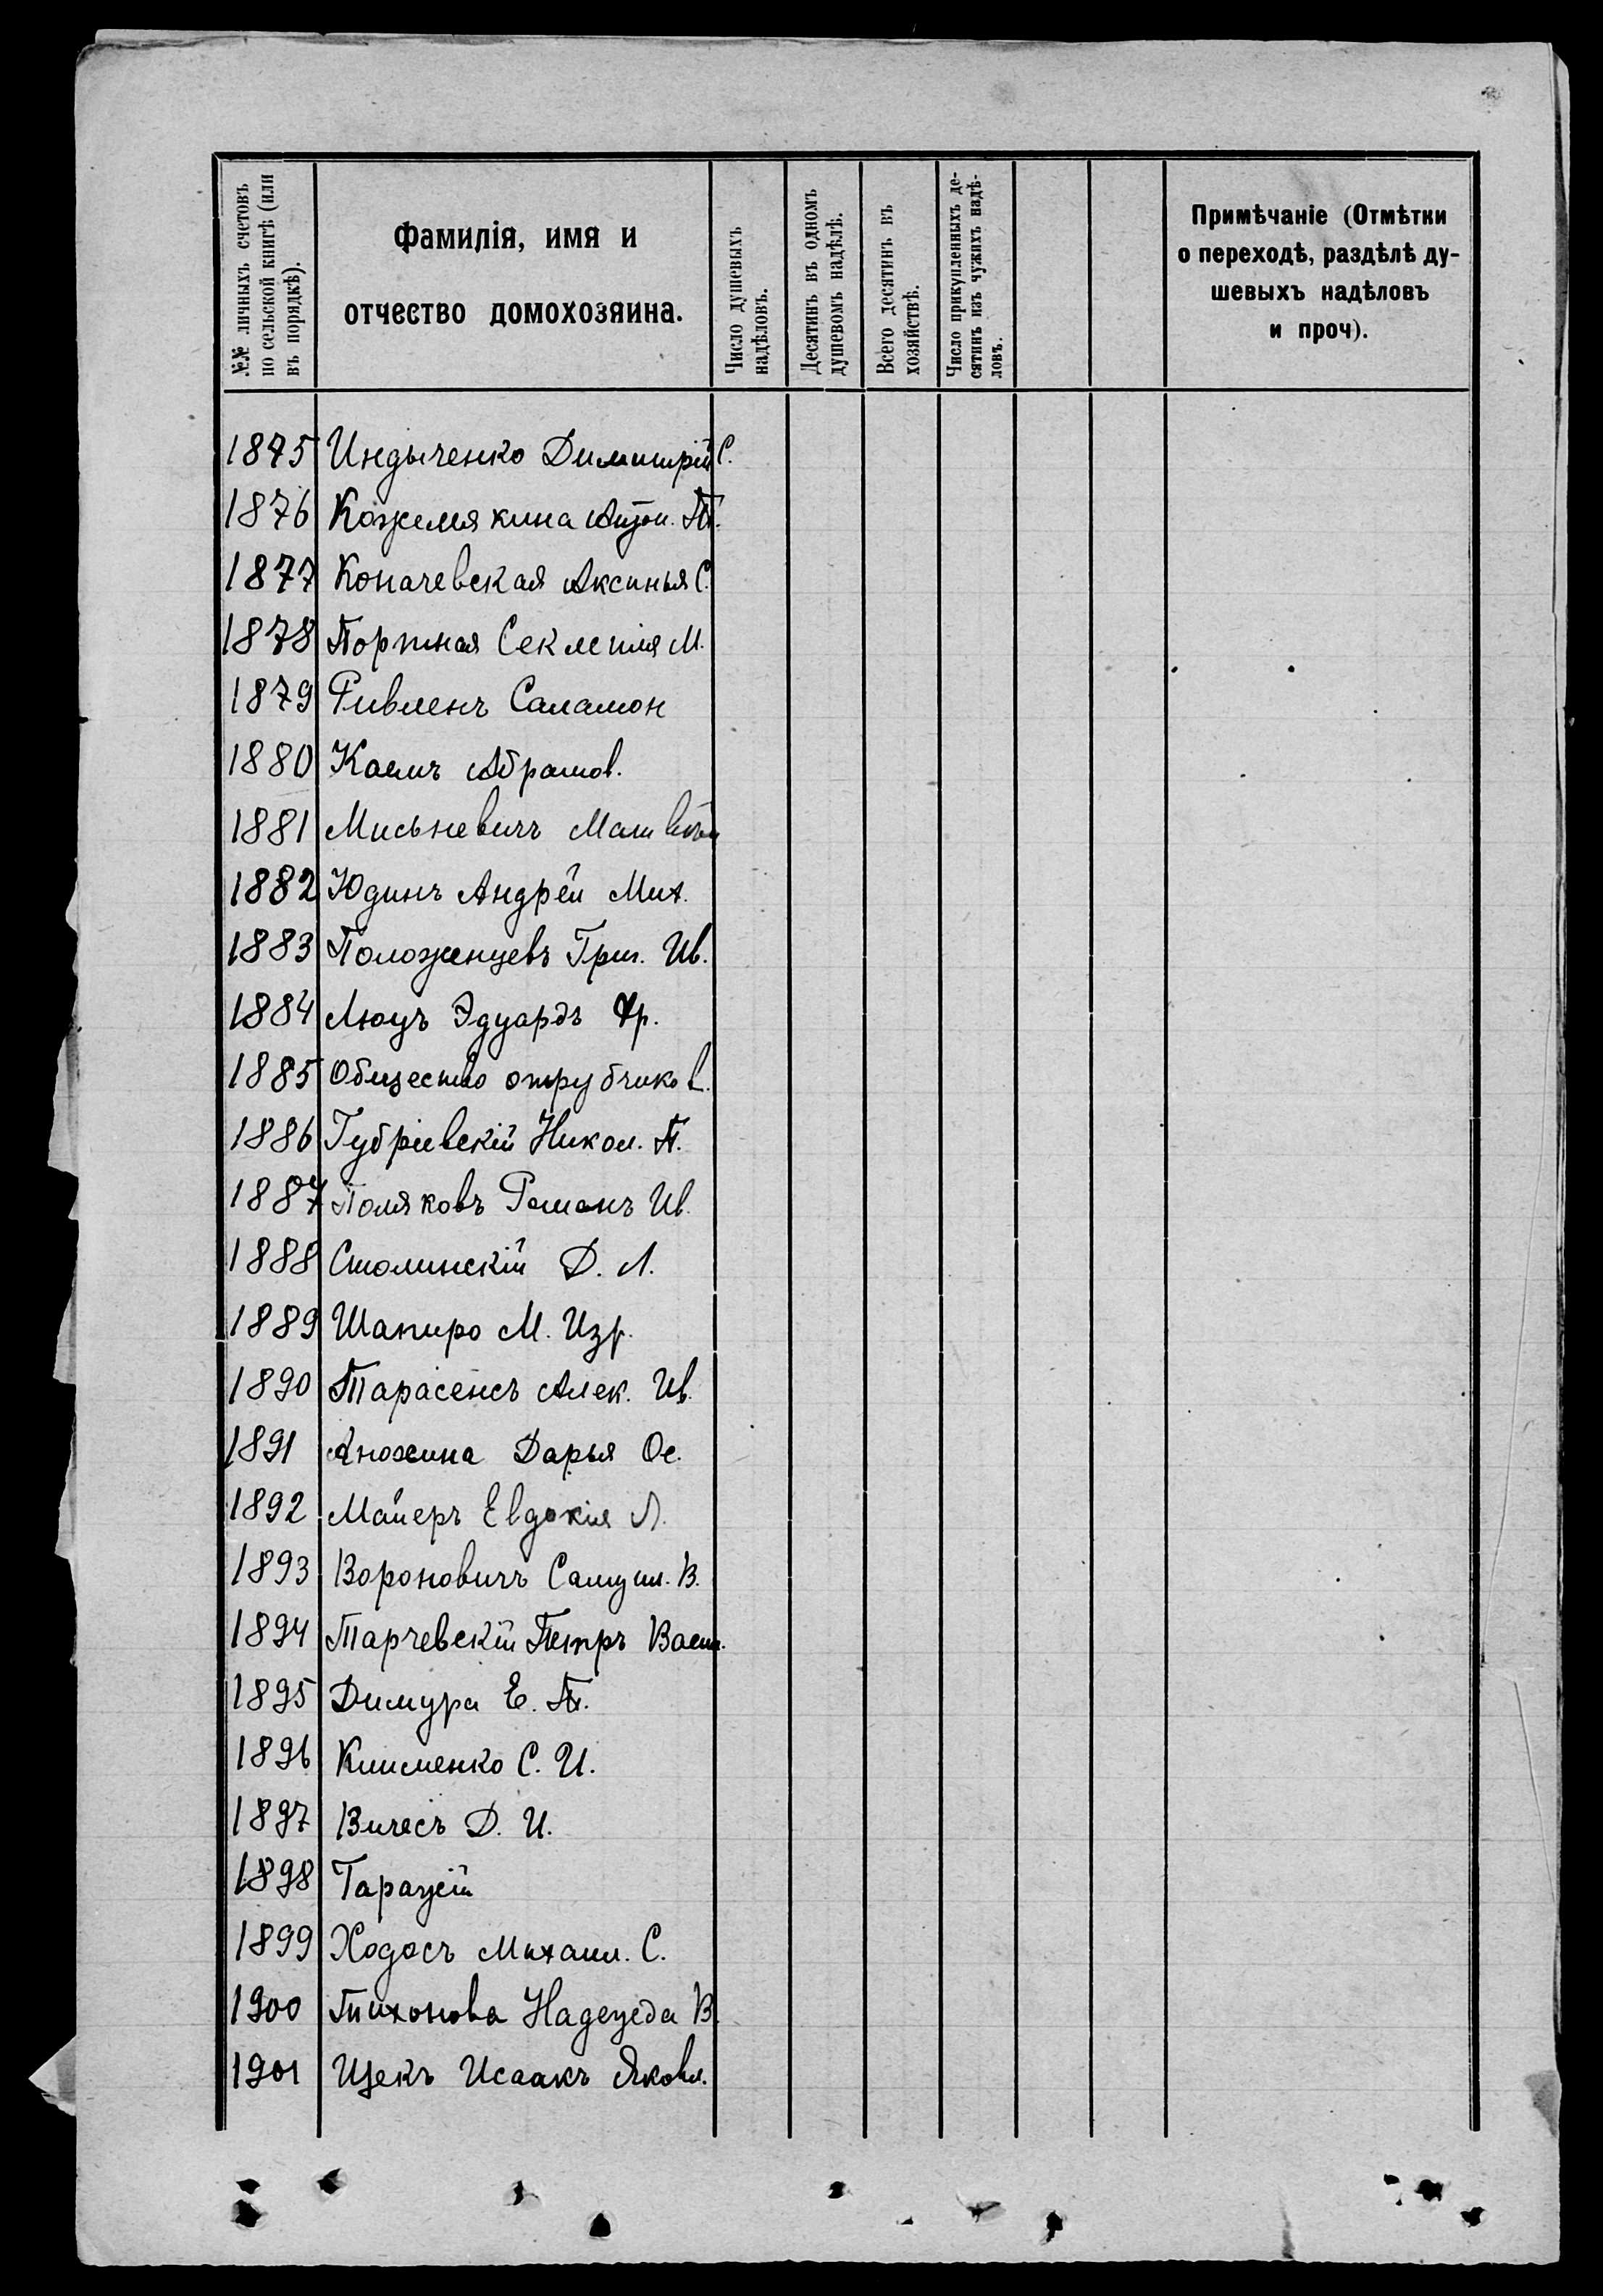 №№ личныхъ счетовъ
по сельской книгѣ (или
въ порядкѣ).
Фамилія, имя и
отчество домохозяина.
Число душевыхъ
надѣловъ.
Десятинъ въ одномъ
душевомъ надѣлѣ.
Всего десятинъ въ
хозяйствѣ.
Число прикупленныхъ де-
сятинъ изъ чужихъ надѣ-
ловъ.
Примѣчаніе (Отмѣтки
о переходѣ, раздѣлѣ ду-
шевыхъ надѣловъ
и проч).
1875 Индыченко Димитрій С.
1876 Кожемякина П.
1877 Коначевская Аксинья С.
1878 Портная Секлетія М.
1879 Ривленъ Саламон
1880 Каемъ Абрамов.
1881 Мисьневичъ Матвѣй
1882 Юдинъ Андрей Мих.
1883 Положенцевъ Григ. Ив.
1884 Люцъ Эдуардъ Фр.
1885 Общество отрубчиков.
1886 Губріевскій Никол. П.
1887 Поляковъ Романъ Ив.
1888 Смолинскій Д. Л.
1889 Шапиро М. Изр.
1890 Тарасенсъ Алек. Ив.
1891 Анохина Дарья Ос.
1892 Майеръ Евдокія Л.
1893 Вороновичъ Самуил. В.
1894 Тарчевскій Петръ Васил.
1895 Димура Е. П.
1896 Клименко С. И.
1897 Вичесъ Д. И.
1898 Тарацій
1899 Ходосъ Михаил. С.
1900 Тихонова Надежда В.
1901 Щекъ Исаакъ Яковл.